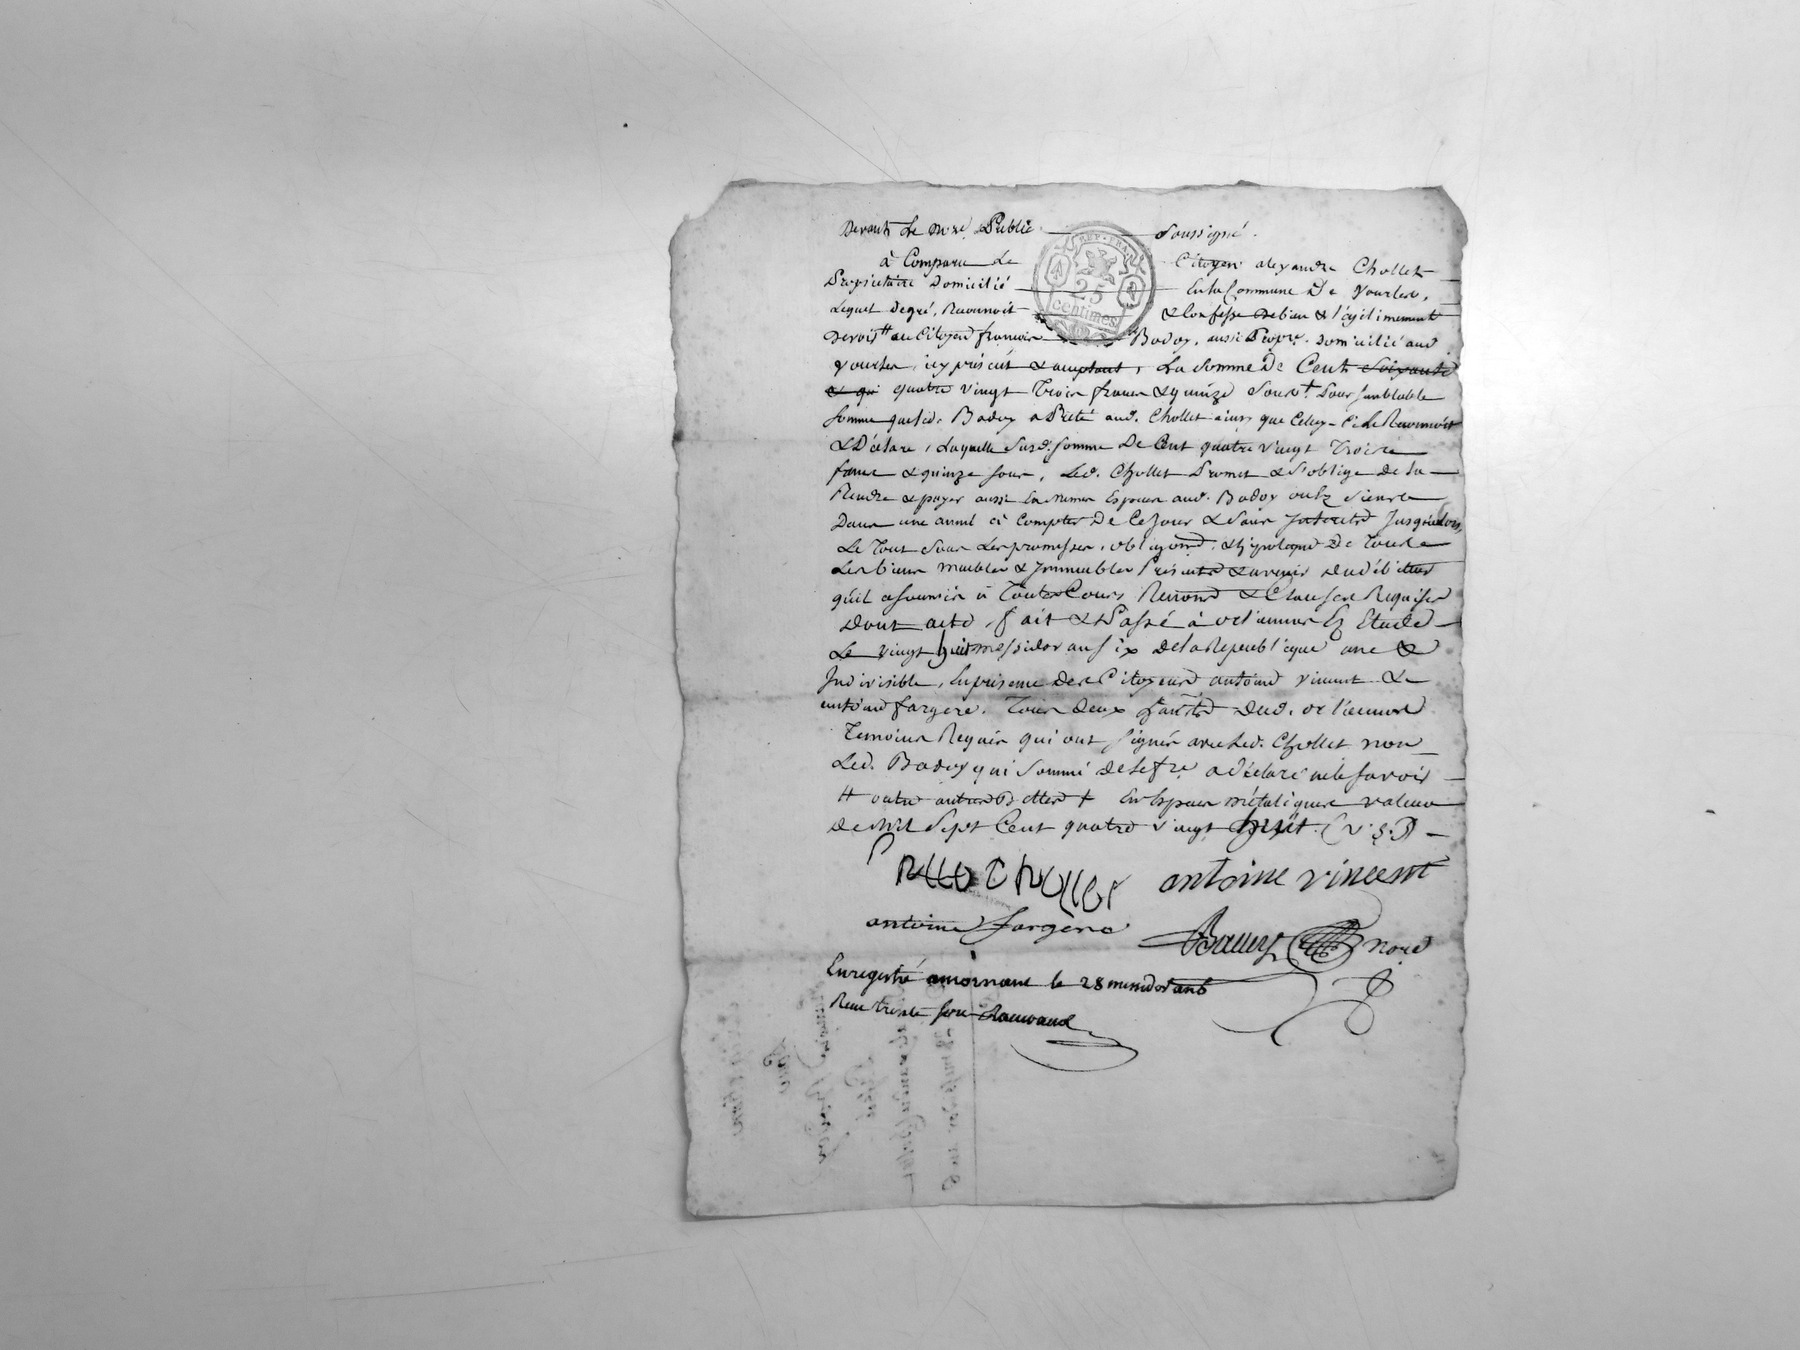 Devant Le n.re Public soussigné.
à Comparu Le Citoyen alexandre Chollet
Propriétaire Domicilié En la Commune De Yourles,
Lequel degré, Reconnoit & Confesse debien & légitimement
devoir # au Citoyen françois Badoy, aussi Propre. domicilié aud
vourles, icy présent & acceptant, La Somme De Cent soixante
& qui quatre vingt Trois francs & quinze sous + Pour semblable
somme queled. Badoy a Preté aud. Chollet ainsy que Celuy-Ci Le Reconnoit
& Déclare, Laquelle susd. somme De Cent quatre vingt Trois
francs & quinze sous, Led. Chollet Promet & s'oblige de La
Rendre & payer aussi En memes Especes aud. Badoy ou És Siens
Dans une année à Compter De Ce jour & Sans Interets Jusqu'alors,
Le Tout Sous Les promesses, obligaond, & hipoteque De Tous
Les biens meubles & Immeubles Présents & avenir dud débiteur
quil a soumis à Toutes Cours Renond & Clauses Requises
Dont acte, fait & Passé à orliennas Ez Etude
Le vingt huit messidor an six De la République une &
Indivisible, En présence des Citoyens antoine vincent &
antoine fargere, Tous deux dud. orliennas
Temoins Requis qui ont signés avec Led. Chollet non
Led. Badoy qui sommé de le fre a déclaré ne le savoir
# outre autres Dettes + En Especes métaliques valeur
De mil Sept Cent quatre vingt huit
Chollet antoine vincent
antoine fargère
nore
Enregistré amornant le 28 messidor an 6
Reçu trente sous
REP. FRA.
25
centimes